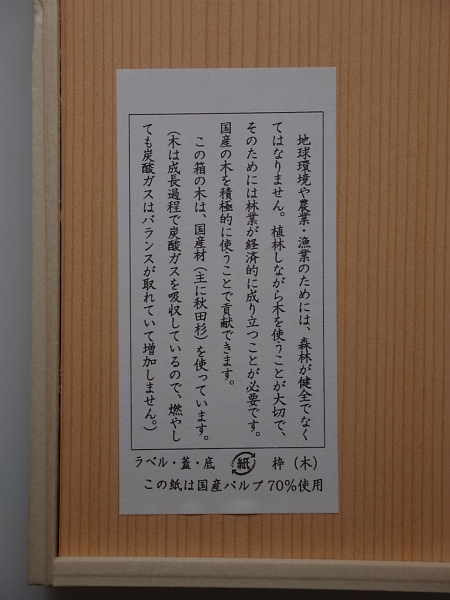 地球環境や農業・漁業のためには、森林が健全でなく
てはなりません。植林しながら木を使うことが大切で、
そのためには林業が経済的に成り立つことが必要です。
国産の木を積極的に使うことで貢献できます。
この箱の木は、国産材(主に秋田杉)を使っています。
(木は成長過程で炭酸ガスを吸収しているので、燃やし
ても炭酸ガスはバランスが取れていて増加しません。)
ラベル・蓋・底 紙 枠(木)
この紙は国産パルプ70%使用